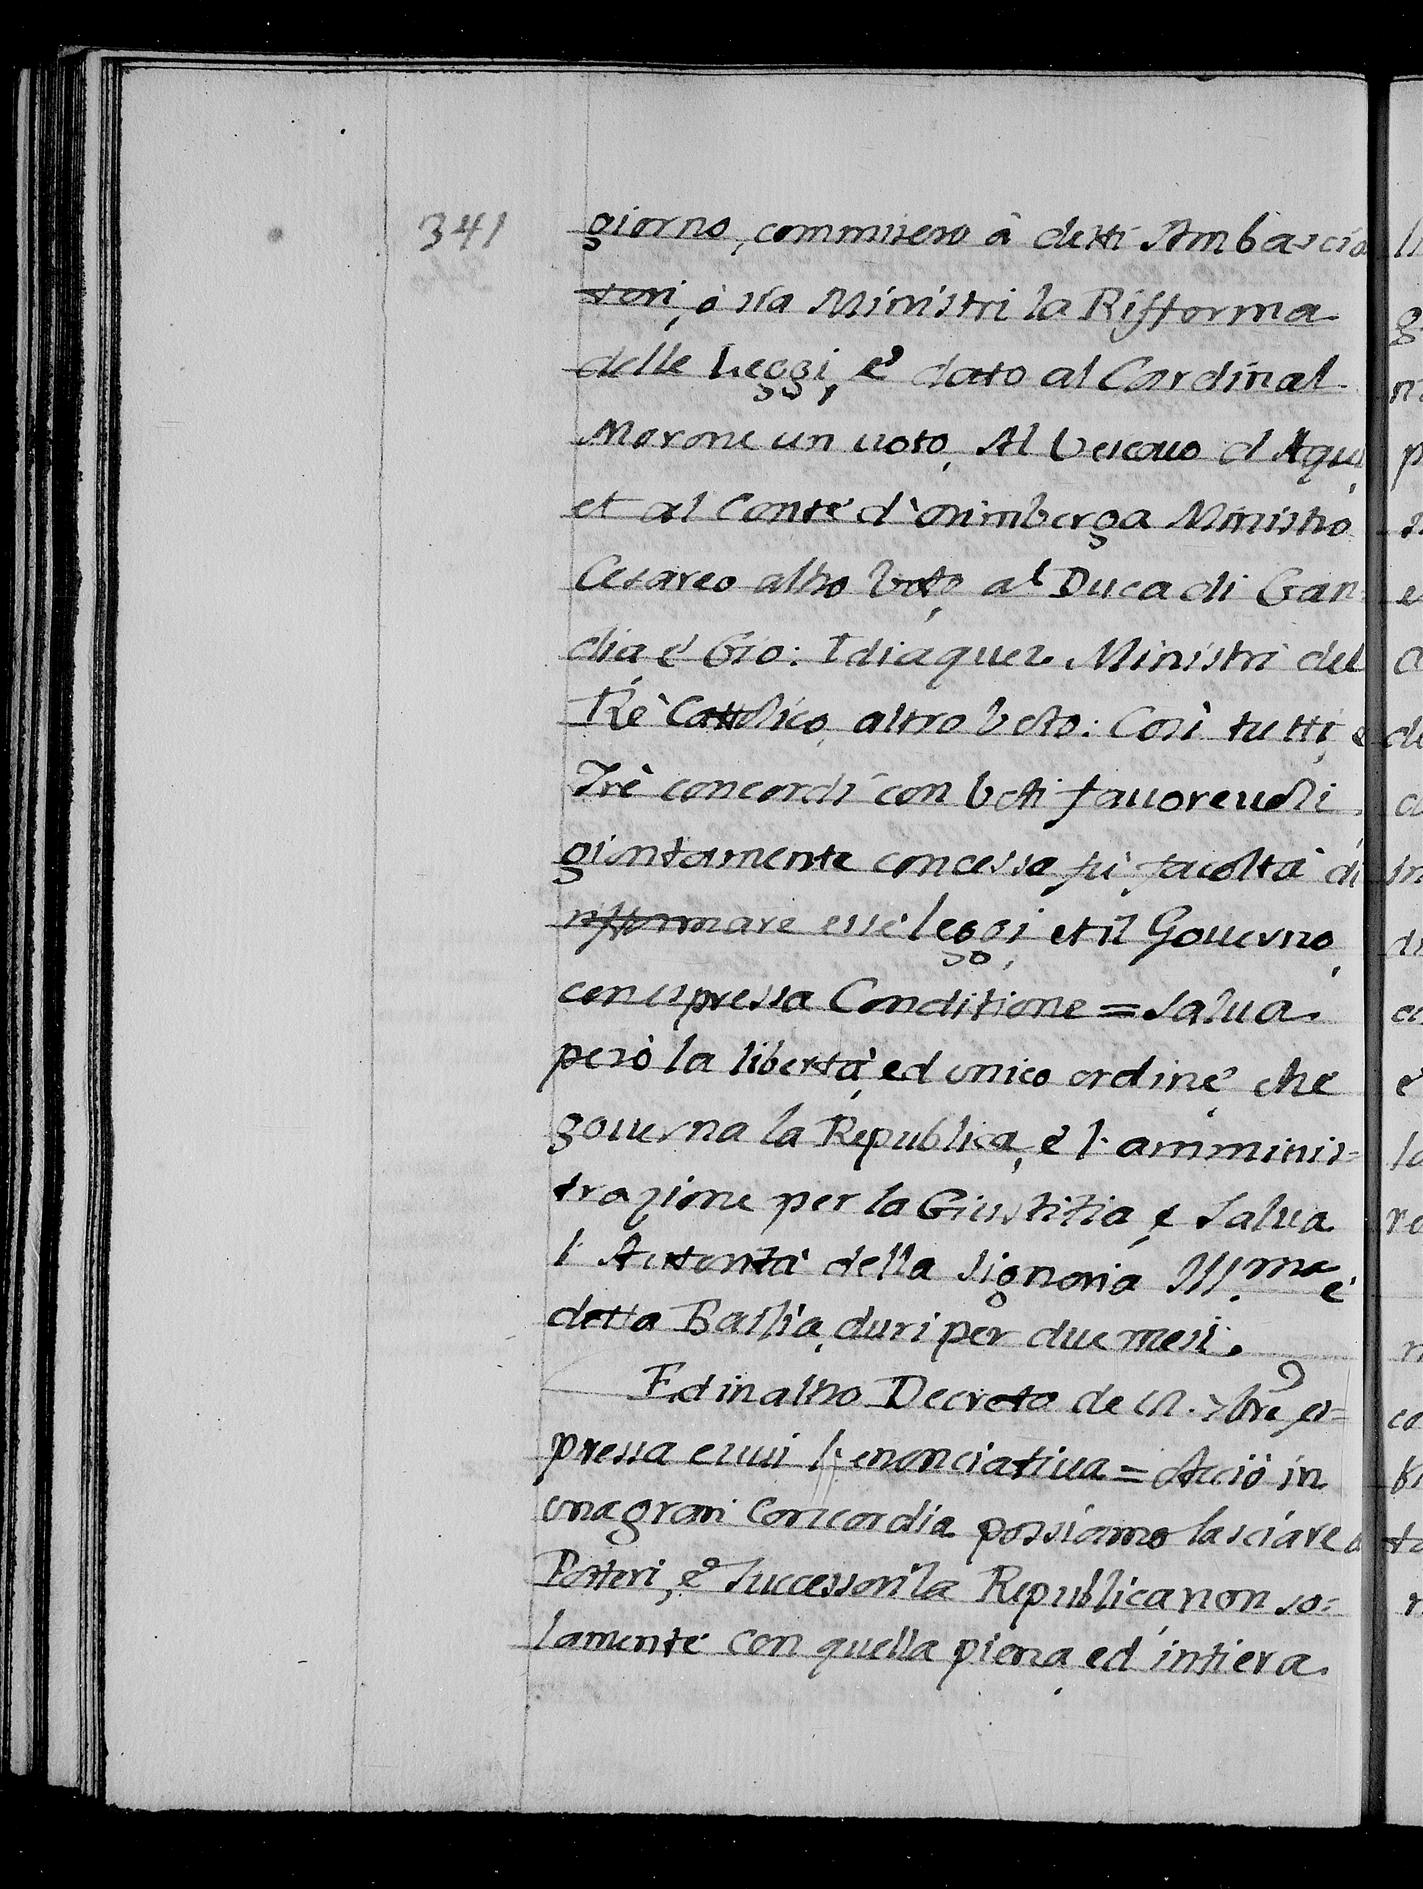 341
giorno, commisero à detti Ambascia
tori, ò sia Ministri la Rifforma
delle Leggi, è dato al Cardinal
Morone un uoto, Al Vescouo d'Aqui,
et al Conte d'Orimberga Ministro
Cesareo altro Voto, al Duca di Gan
dia, è Gio: Idiaquez Ministri del
Rè Cattolico, altro Voto: Così tutti, e
Trè concordi con Voti fauoreuoli,
giontamente concessa fù facoltà di
rifformare esse leggi, et il Gouerno,
con espressa Conditione = salua
però la libertà, ed unico ordine, che
gouerna la Republica, è l'amminis=
trazione per la Giustitia, e Salua
l'Autorità della Signoria Ill.ma è
detta Bailia, duri per due mesi.
Ed in altro Decreto de 7bre, es=
pressa eui l'enonciatiua = Acciò in
una gran Concordia possiamo lasciare a
Posteri, è Successori la Republica, non so=
lamente con quella piena, ed intiera